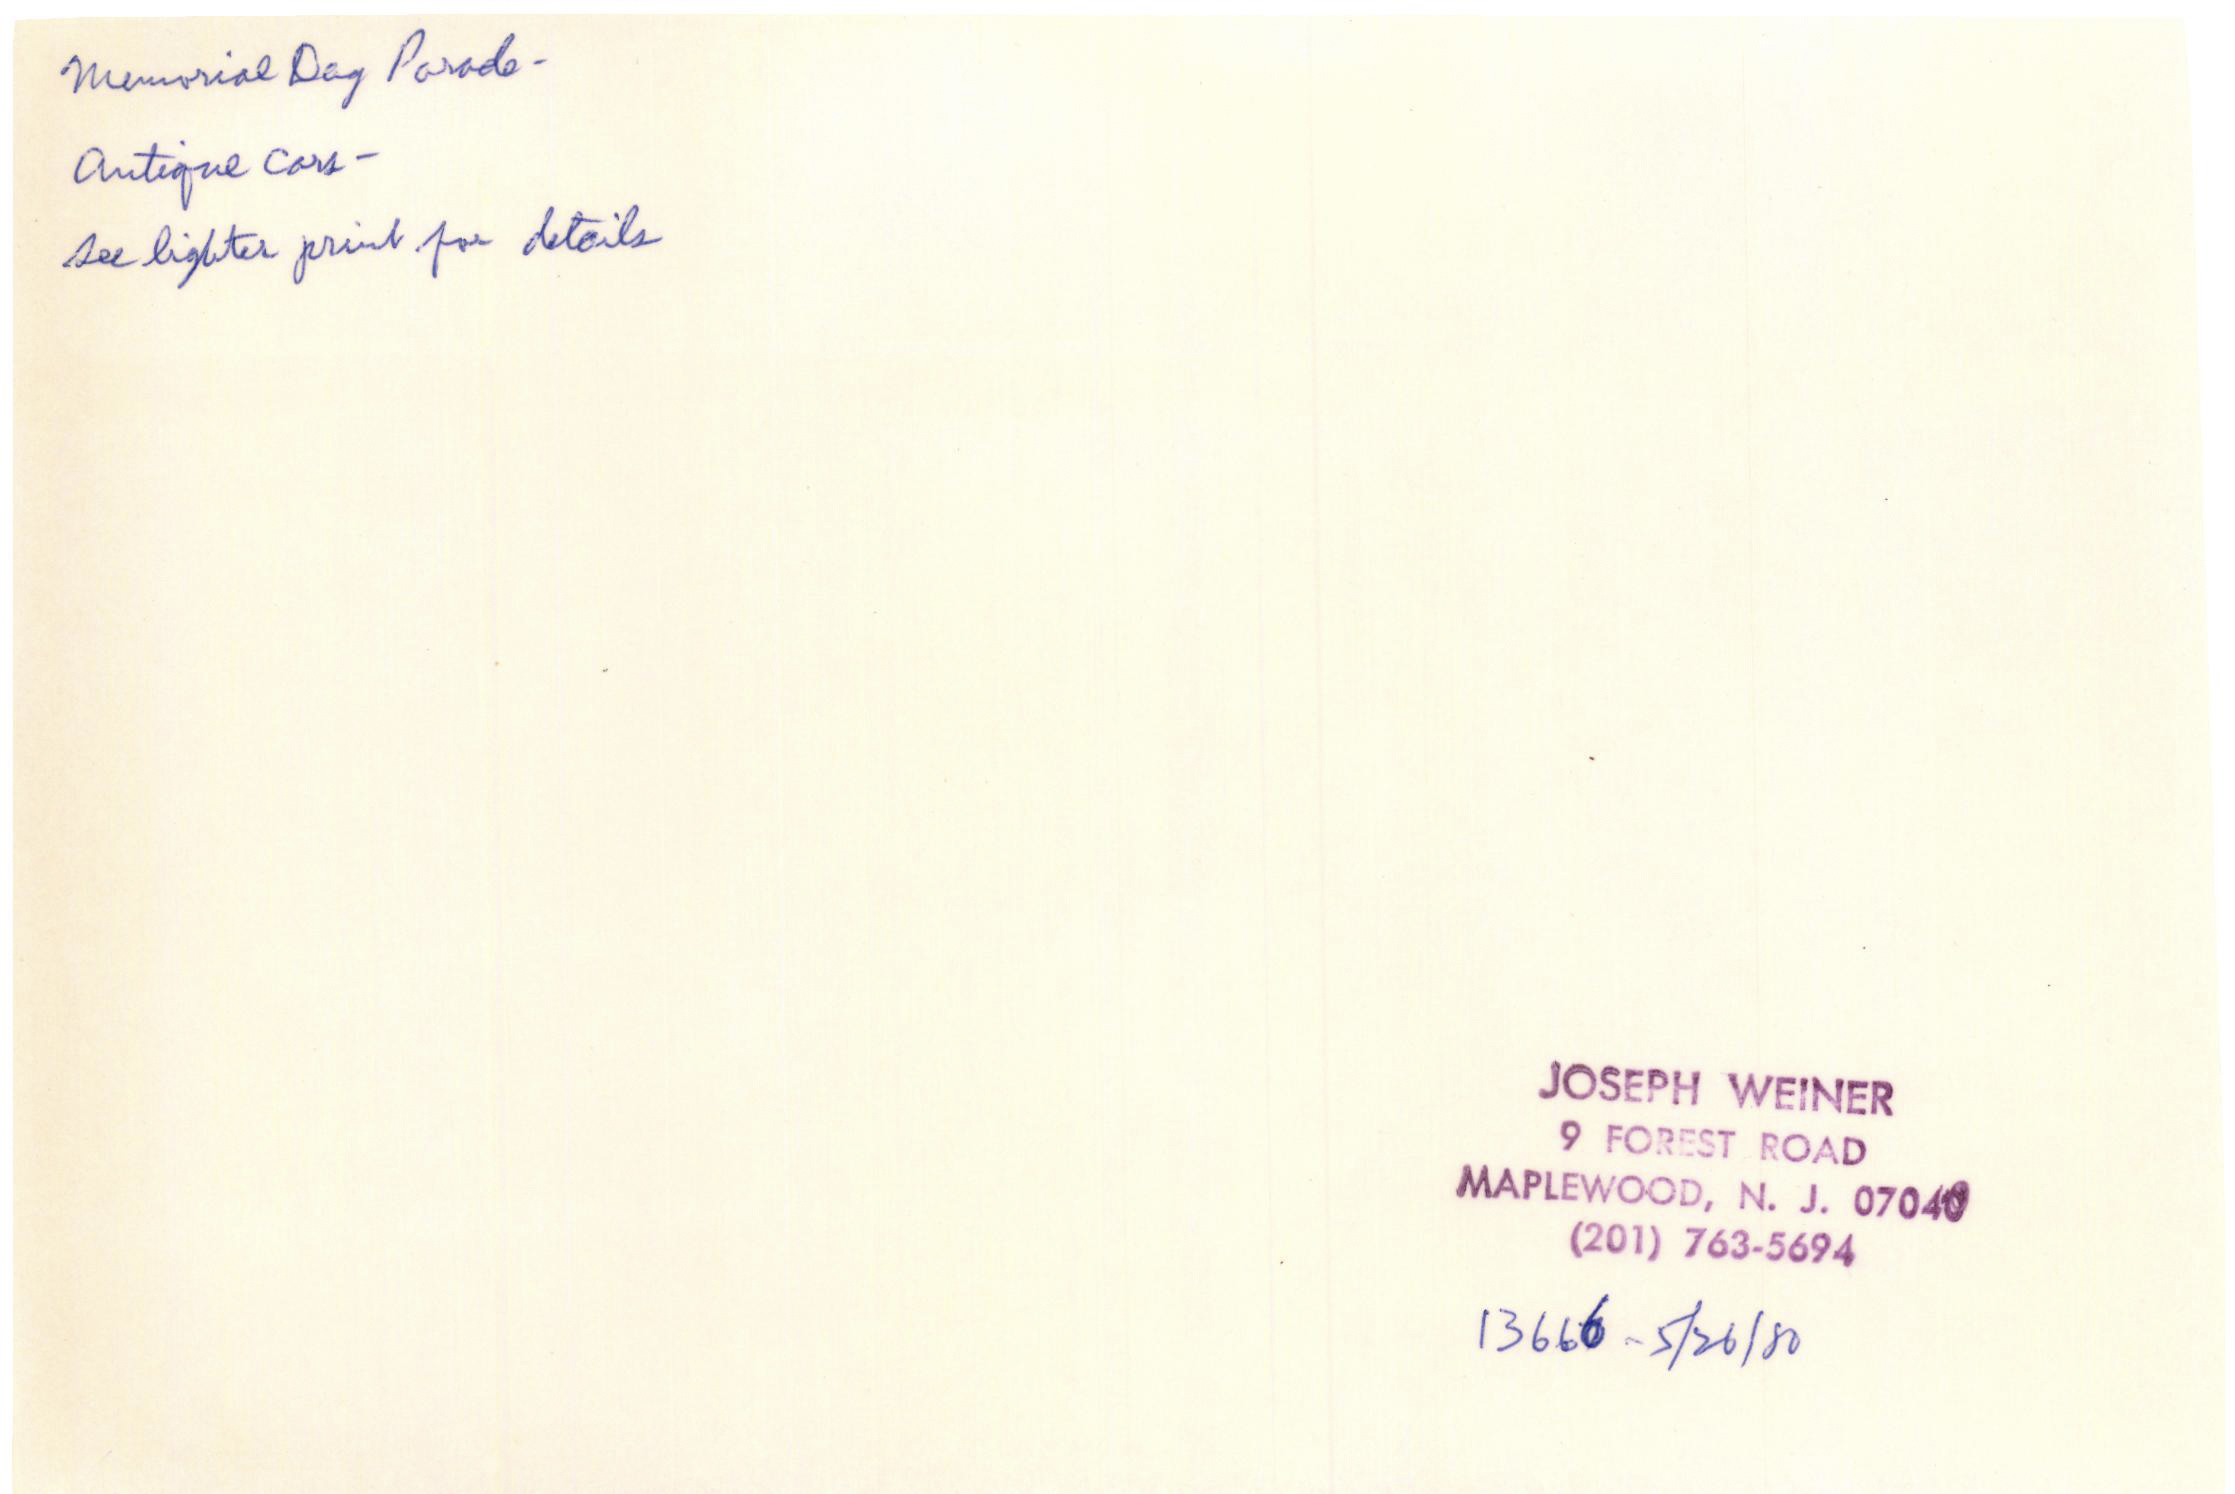 Memorial Day Parade -
Antique cars -
see lighter print for details
JOSEPH WEINER
9 FOREST ROAD
MAPLEWOOD, N. J. 07040
(201) 763-5694
13666 - 5/26/80